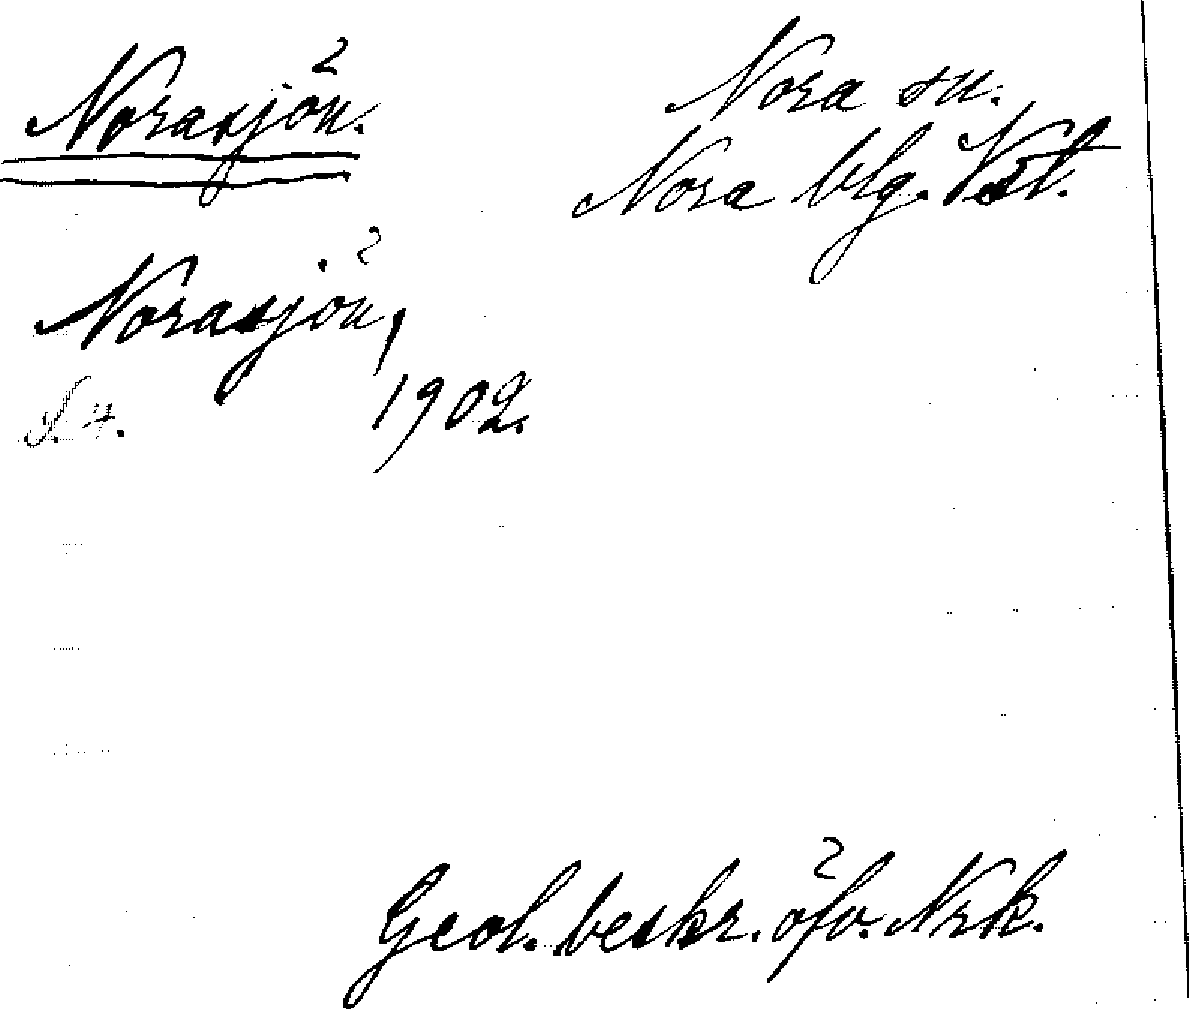 Norasjön.
Nora sn.
Nora blg. Vstl.
Norasjön,
S. 4.
1902.
Geol. beskr. öfv. Nrk.